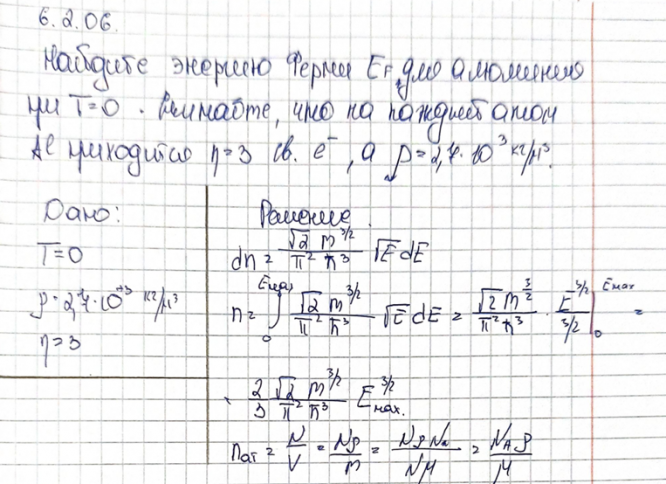 6.2.06.
Найдите энергию Ферми E_F для алюминия
при T=0. Считайте, что на каждый атом
Al приходится η=3 св. e⁻, а ρ=2,7·10³ кг/м³.
Дано:
T=0
ρ=2,7·10³ кг/м³
η=3
Решение
dn = √2 m^{3/2} / π² ħ³ √E dE
n = ∫₀^{Emax} √2 m^{3/2} / π² ħ³ √E dE = √2 m^{3/2} / π² ħ³ · E^{3/2} / 3/2 |₀^{Emax} =
2/3 √2 m^{3/2} / π² ħ³ E^{3/2}_{max.}
n_ат = N/V = Nρ/m = NρN_A / Nμ = N_Aρ / μ